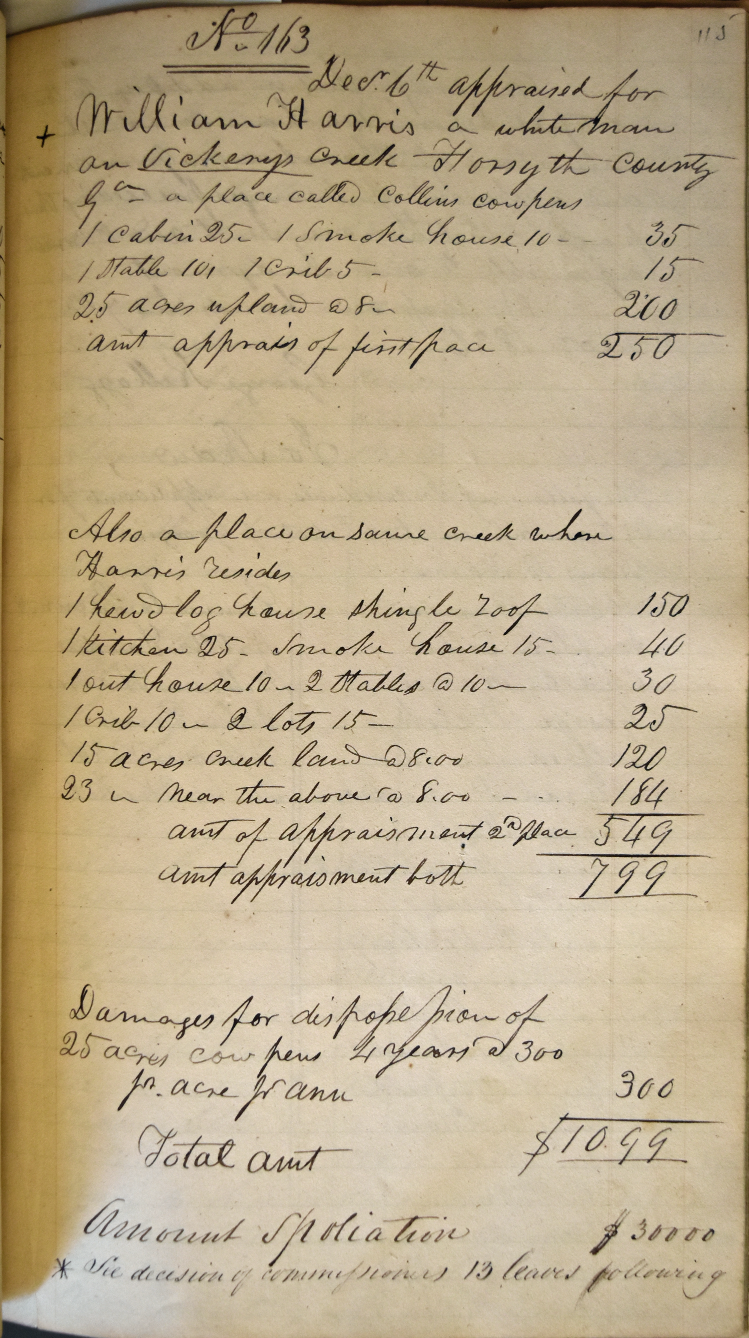 115
No. 163
Decr. 6th appraised for
+ William Harris a white man
on Vickerys creek Forsyth county
Ga a place called Collins cowpens
1 Cabin 25 1 Smoke house 10 - - 35
1 Stable 10, 1 Crib 5 - 15
25 acres upland @ 8 200
amt apprais of first pace 250
Also a place on same creek where
Harris resides
1 hewd log house shingle roof 150
1 Kitchen 25 - Smoke house 15 - 40
1 out house 10 - 2 Stables @ 10 - 30
1 Crib 10 - 2 lots 15 - 25
15 acres creek land @ 8.00 120
23 " Near the above @ 8.00 - . . 184
amt of appraisment 2d place 549
amt appraisment both 799
Damages for dispossession of
25 acres cow pens 4 years @ 300
pr. acre pr ann 300
Total amt $10.99
Amount Spoliation $30000
* See decision of commissioners 13 leaves following